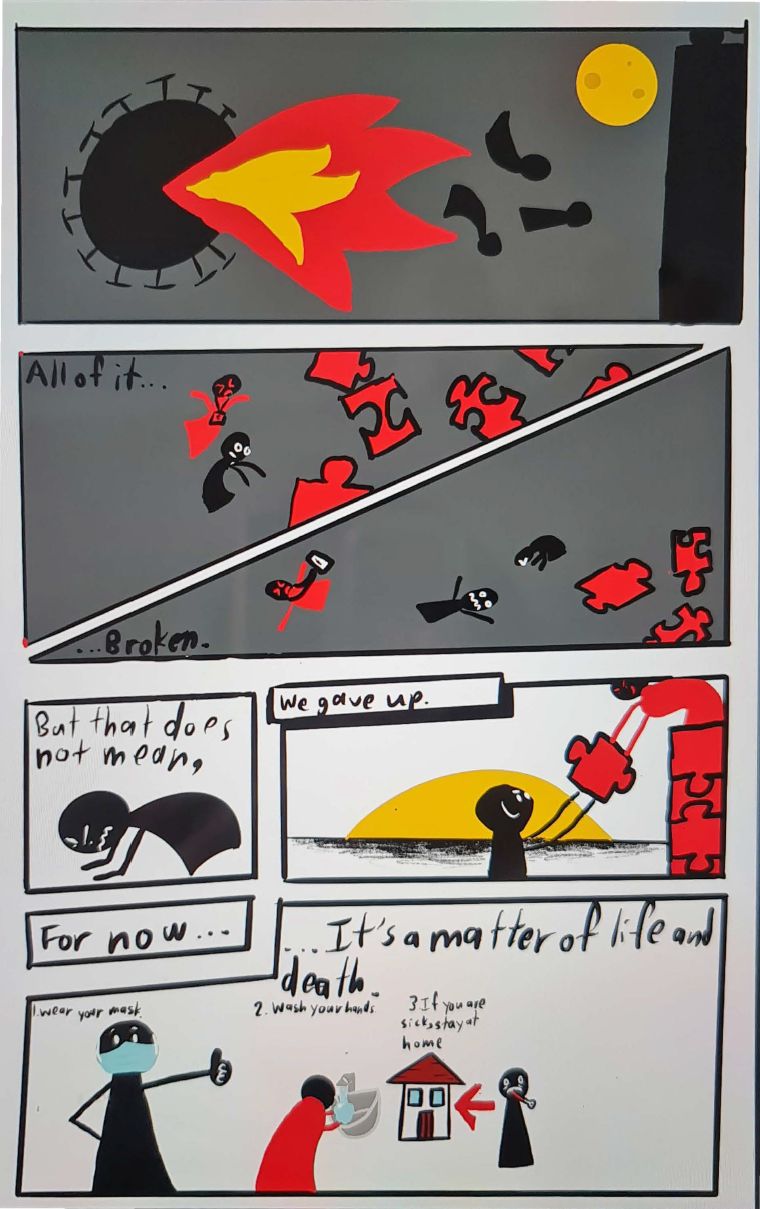 All of it...
...Broken.
But that does
not mean,
We gave up.
For now...
...It's a matter of life and
death.
1. wear your mask.
2. Wash your hands.
3 If you are
sick, stay at
home